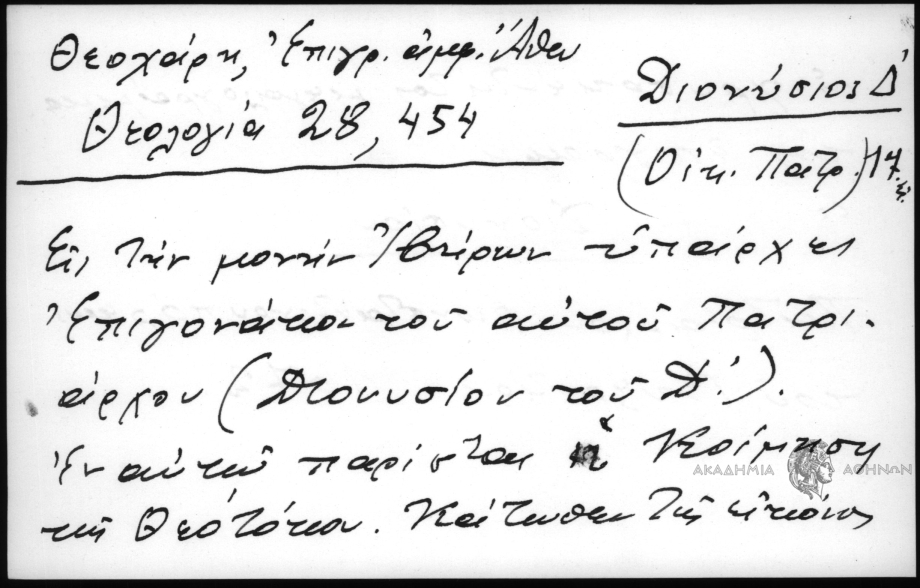 Θεοχάρη, Ἐπιγρ. ἀμφ. Ἄθω
Θεολογία 28, 454
Διονύσιος Δ'
(Οἰκ. Πατρ.) 17.
Εἰς τὴν μονὴν Ἰβήρων ὑπάρχει
Ἐπιγονάτιον τοῦ αὐτοῦ Πατρι-
άρχου (Διονυσίου τοῦ Δ').
Ἐν αὐτῷ παρίσταται ἡ Κοίμησις
τῆς Θεοτόκου. Κάτωθεν τῆς εἰκόνος
ΑΚΑΔΗΜΙΑ ΑΘΗΝΩΝ